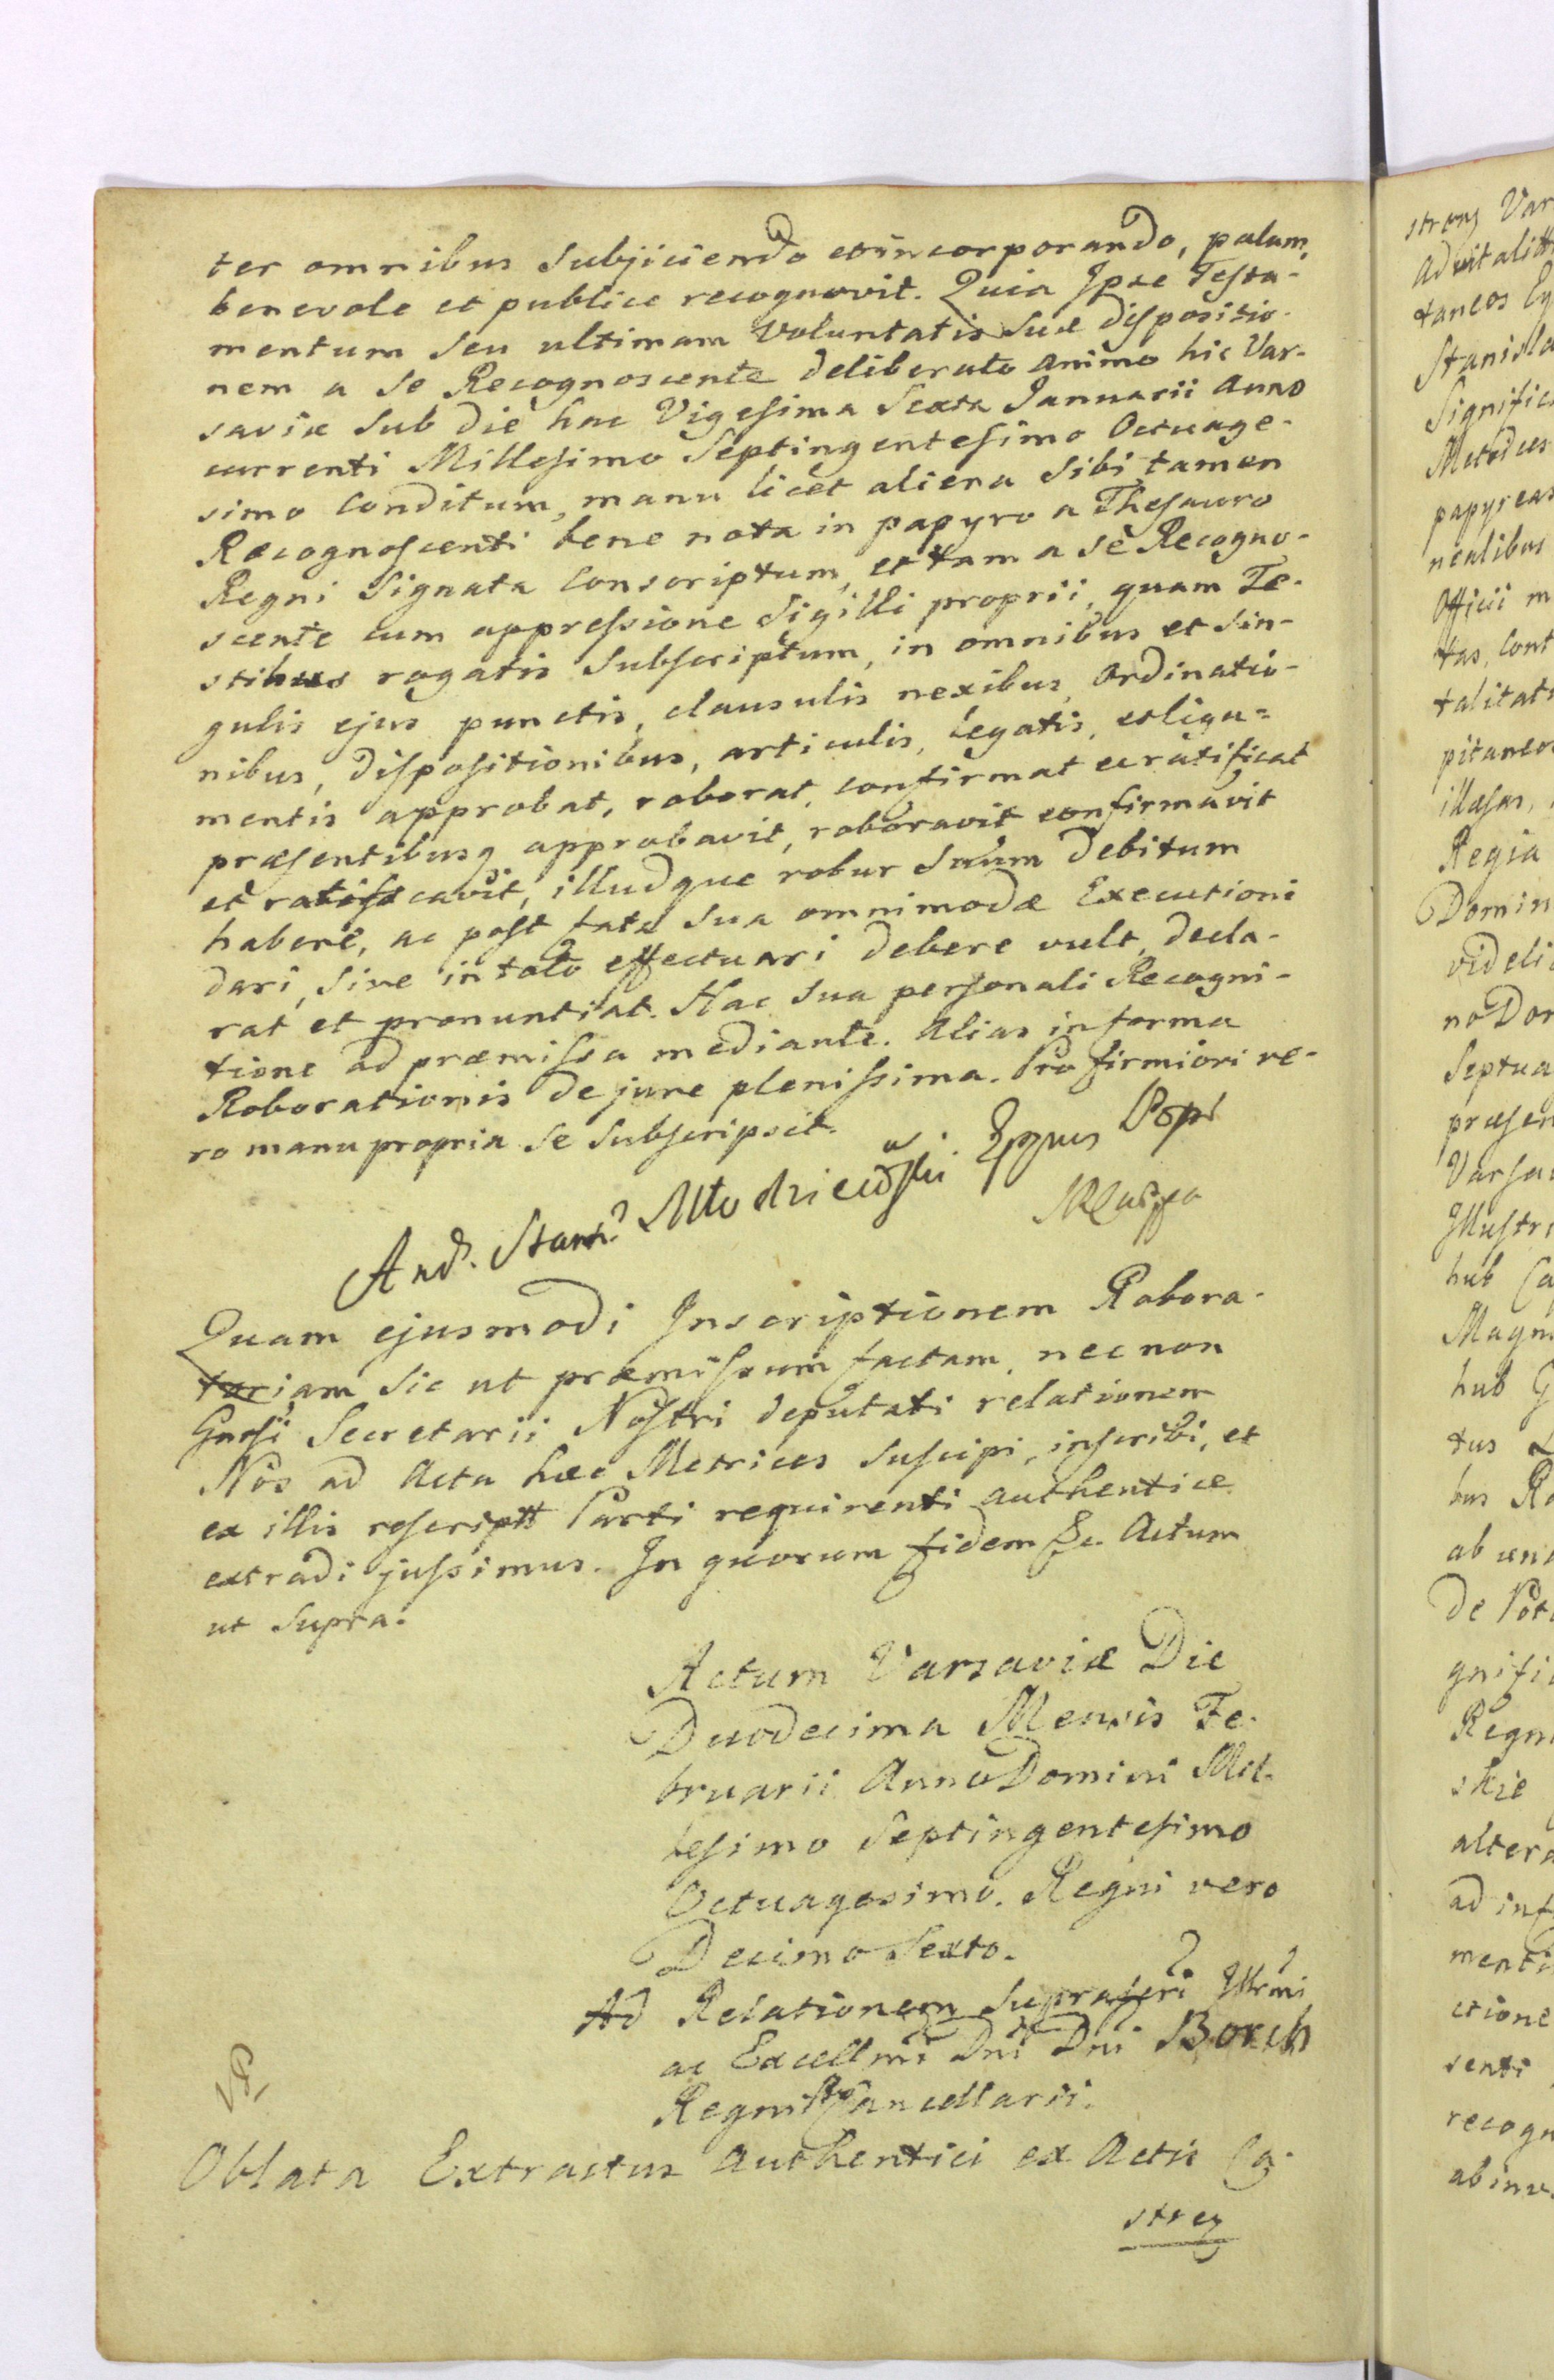 ter omnibus subjiciendo et incorporando, palam,
benevole et publice recognovit. Quia Ipse Testa-
mentum seu ultimam Voluntatis suæ dispositio-
nem a se Recognoscente deliberato animo hic Var-
saviæ sub die hac Vigesima Sexta Januarii Anno
currenti Millesimo Septingentesimo Octuage-
simo conditum, manu licet aliena sibi tamen
Recognoscenti bene nota in papyro a Thesauro
Regni signata conscriptum, et tam a se Recogno-
scente cum appressione Sigilli proprii, quam Te-
stibus rogatis subscriptum, in omnibus et sin-
gulis ejus punctis, clausulis nexibus, Ordinatio-
nibus, dispositionibus, articulis, Legatis, et liga-
mentis approbat, roborat, confirmat et ratificat
præsentibusq approbavit, roboravit confirmavit
et ratificavit, illudque robur suum debitum
habere, ac post fata sua omnimodæ Executioni
dari, sive in toto effectuari debere vult, decla-
rat et pronuntiat. Hac sua personali Recogni-
tione ad præmissa mediante. Alias in forma
Roborationis de jure plenissima. Pro firmiori ve-
ro manu propria se subscripsit.
And. Stan. Młodzieiowski Eppus Posn
Quam ejusmodi Inscriptionem Robora-
toriam sic ut præmissum factam, nec non
Gnosi Secretarii Nostri deputati relationem
Nos ad Acta hæc Metrices suscipi, inscribi, et
ex illis rescriptt Parti requirenti authentice
extradi jussimus. In quorum fidem &c. Actum
ut supra.
Actum Varsaviæ Die
Duodecima Mensis Fe-
bruarii Anno Domini Mil-
lesimo Septingentesimo
Octuagesimo. Regni vero
Decimo Sexto.
Ad Relationem suprascri Illrmi
ac Excellmi Dni Dni Borch
Regni Pro Cancellarii.
Oblata Extractus Authentici ex Actis Ca-
streq
streq Var
Advitalitt
taneos Ey
Stanisla
Signific
Metrices
papyreas
nealibus
Officii m
tas, Cont
talitat
pitaneo
illæsas,
Regia
Domin
videli
no Do
Septua
præsen
Varsa
Illustr
hub Ca
Magn
hub G
tus
bus Ro
ab un
de Pot
gnifi
Regn
skie
altera
ad inf
menti
ctione
senti
recogn
ab inv